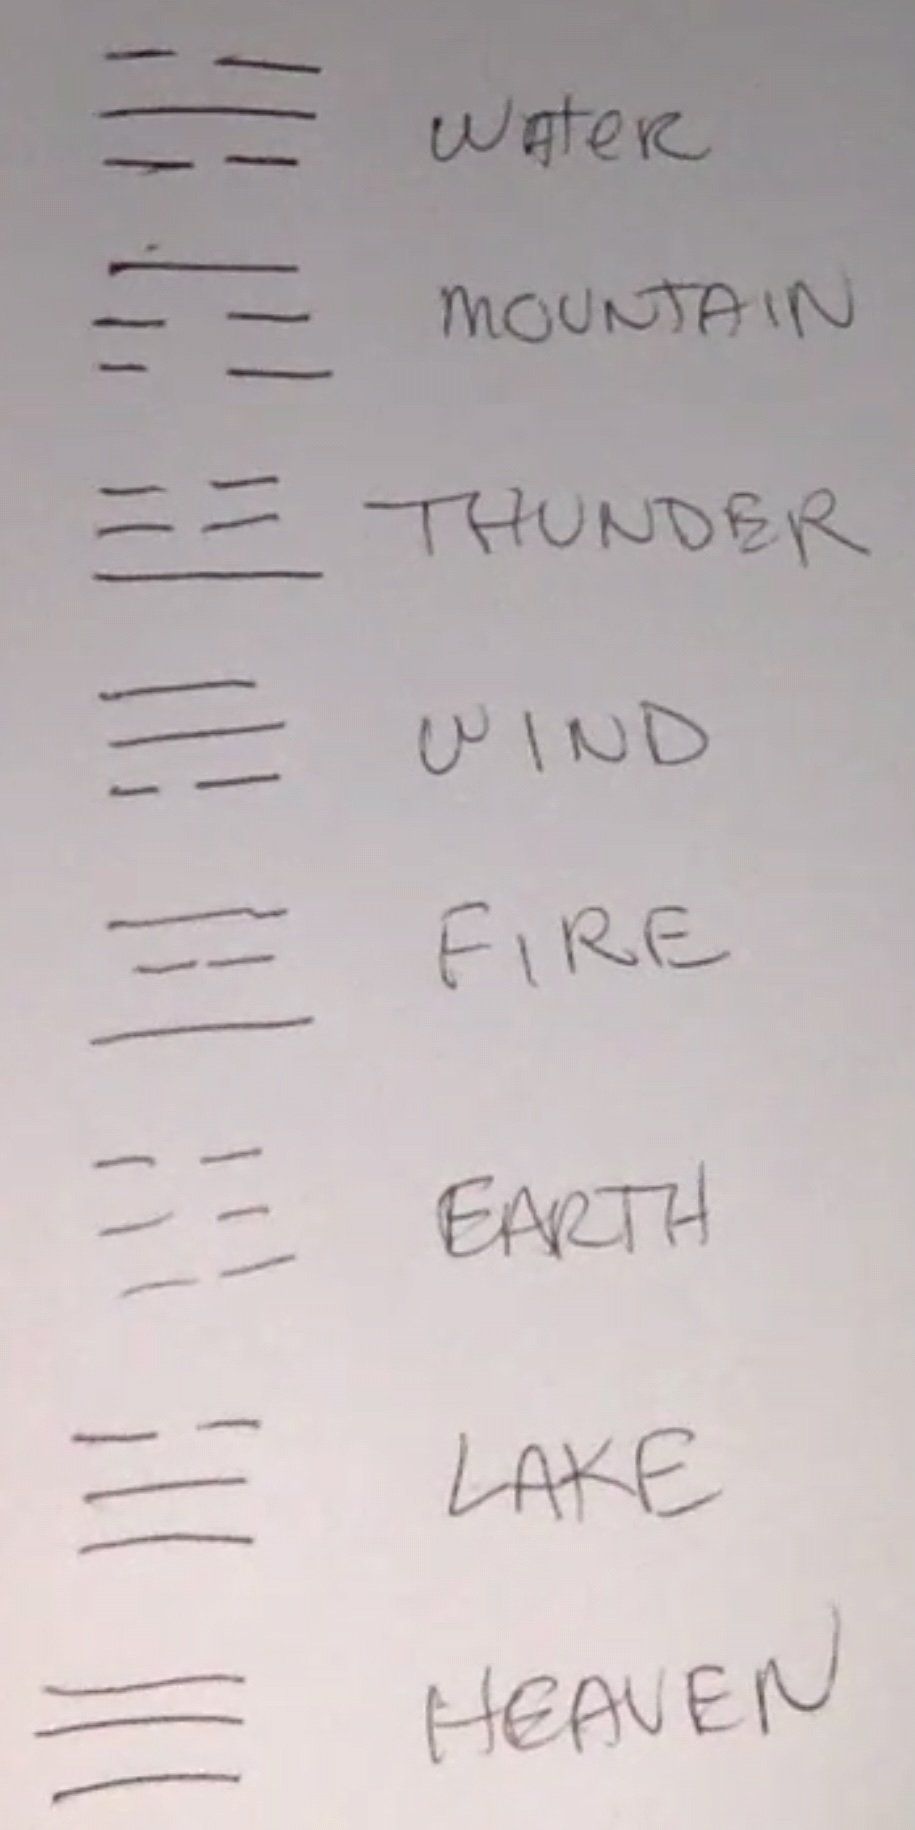 Water
MOUNTAIN
THUNDER
WIND
FIRE
EARTH
LAKE
HEAVEN